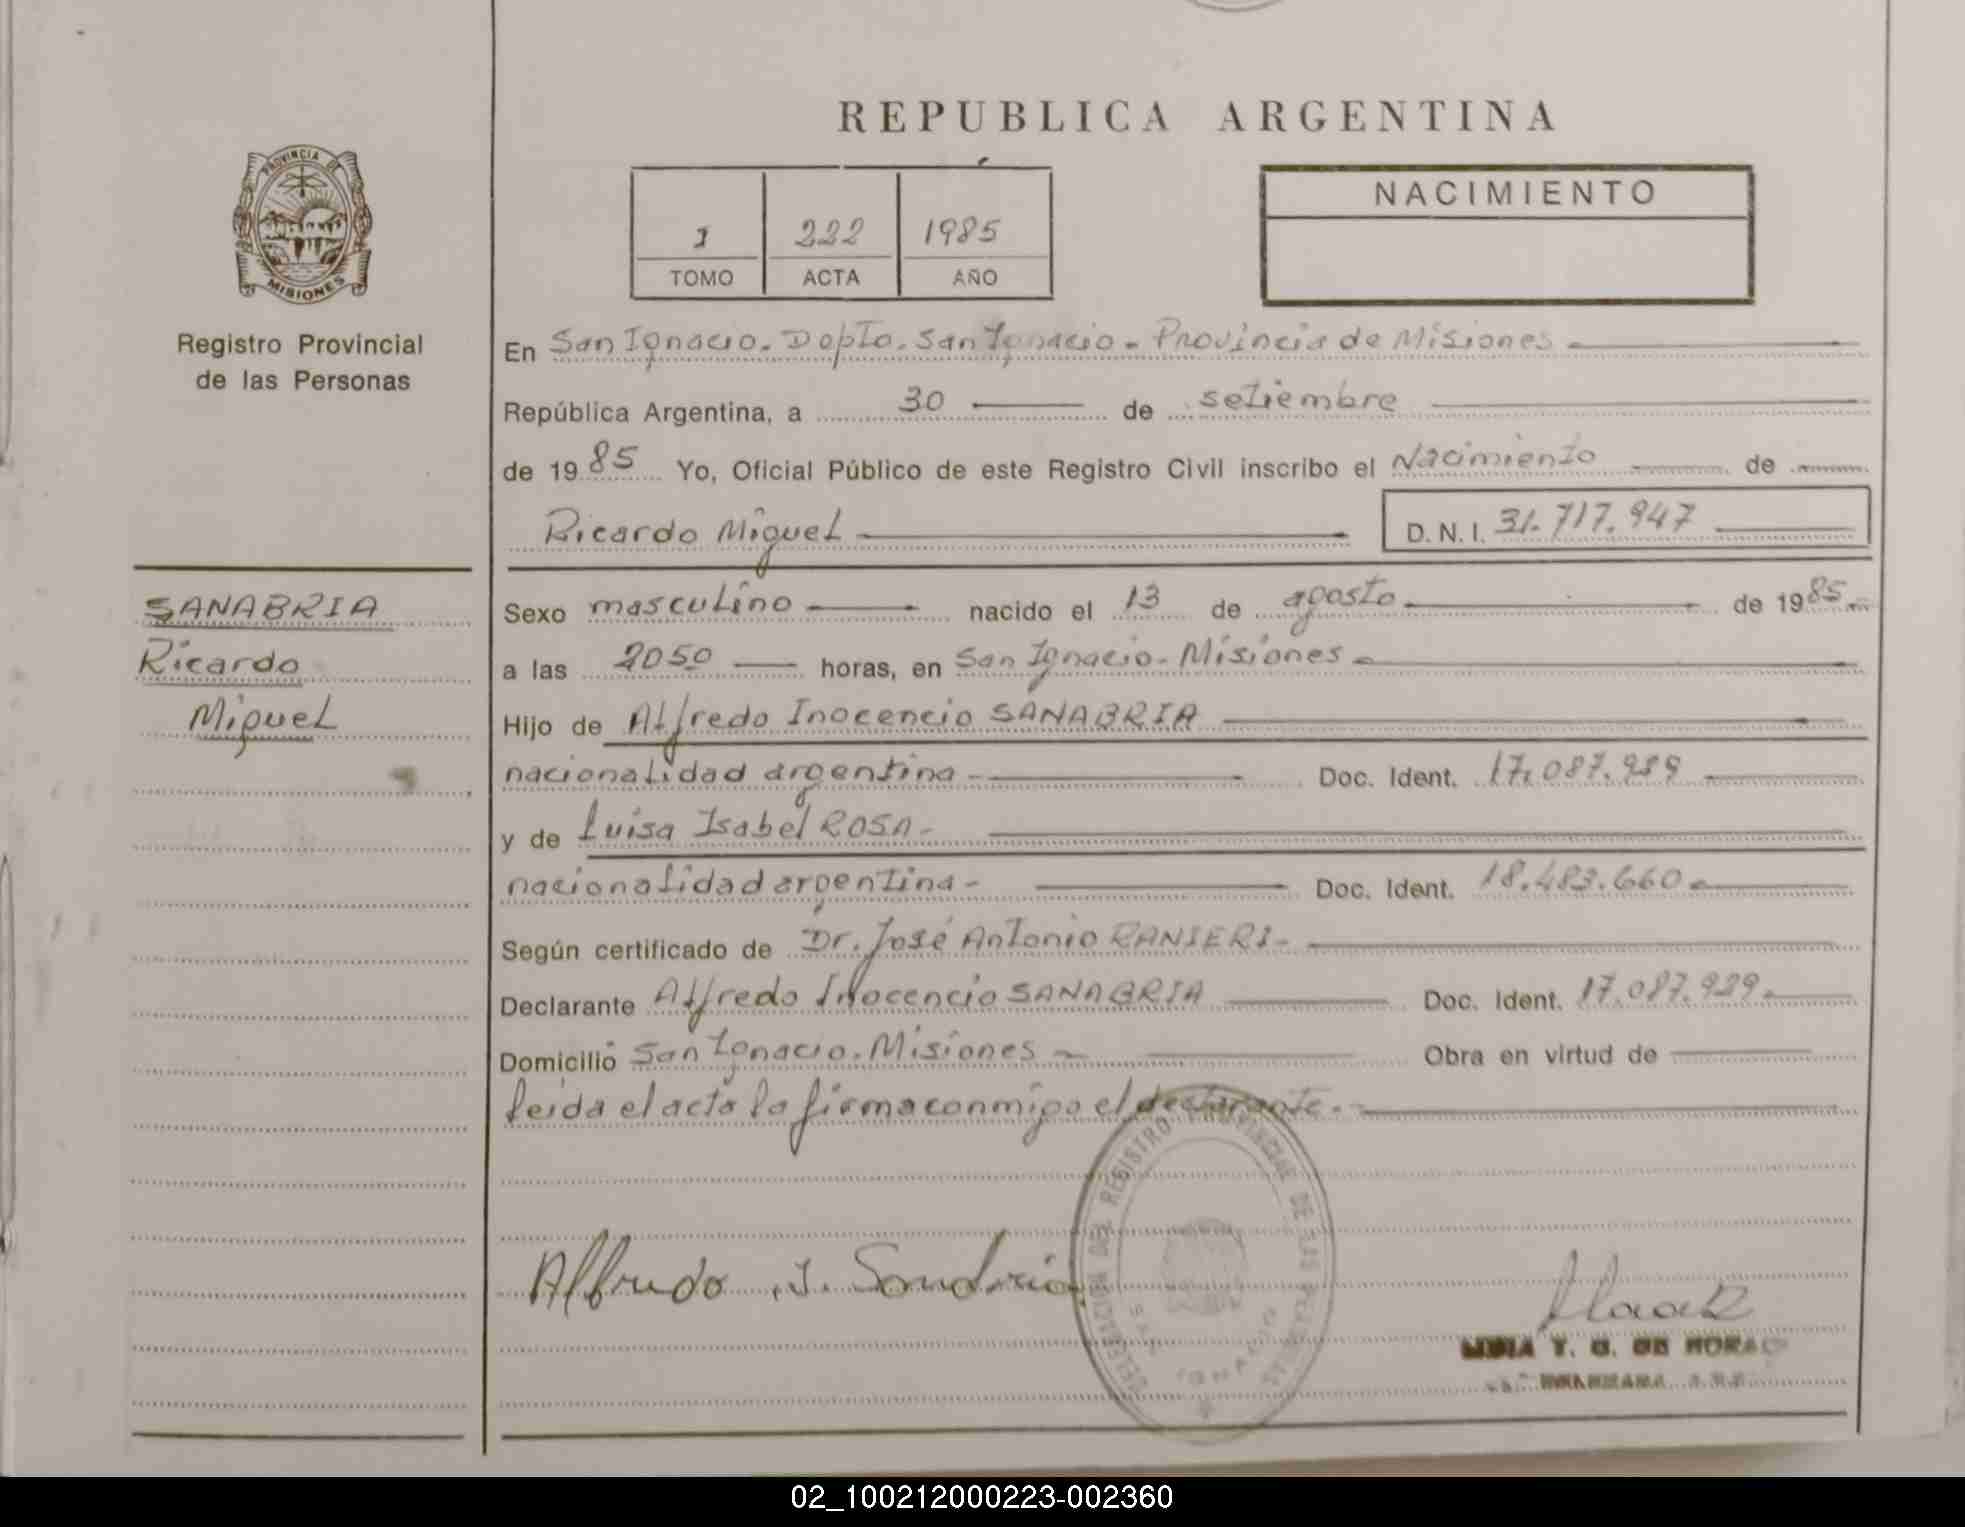 REPUBLICA ARGENTINA
PROVINCIA DE
MISIONES
Registro Provincial
de las Personas
1 222 1985
TOMO ACTA AÑO
NACIMIENTO
En San Ignacio. Dopto. San Ignacio - Provincia de Misiones
República Argentina, a 30 de setiembre
de 1985 Yo, Oficial Público de este Registro Civil inscribo el Nacimiento de
Ricardo Miguel D.N.I. 31.717.947
SANABRIA
Ricardo
Miguel
Sexo masculino nacido el 13 de agosto de 1985
a las 2050 horas, en San Ignacio - Misiones
Hijo de Alfredo Inocencio SANABRIA
nacionalidad argentina - Doc. Ident. 17.087.939
y de Luisa Isabel ROSA -
nacionalidad argentina - Doc. Ident. 18.483.660
Según certificado de Dr. José Antonio RANIERI -
Declarante Alfredo Inocencio SANABRIA Doc. Ident. 17.087.929
Domicilio San Ignacio. Misiones Obra en virtud de
leida el acta la firma conmigo el declarante. -
Alfredo I. Sanabria
DELEGACION DEL REGISTRO PROVINCIAL DE LAS PERSONAS
SAN IGNACIO
T. G. DE MORA
02_100212000223-002360